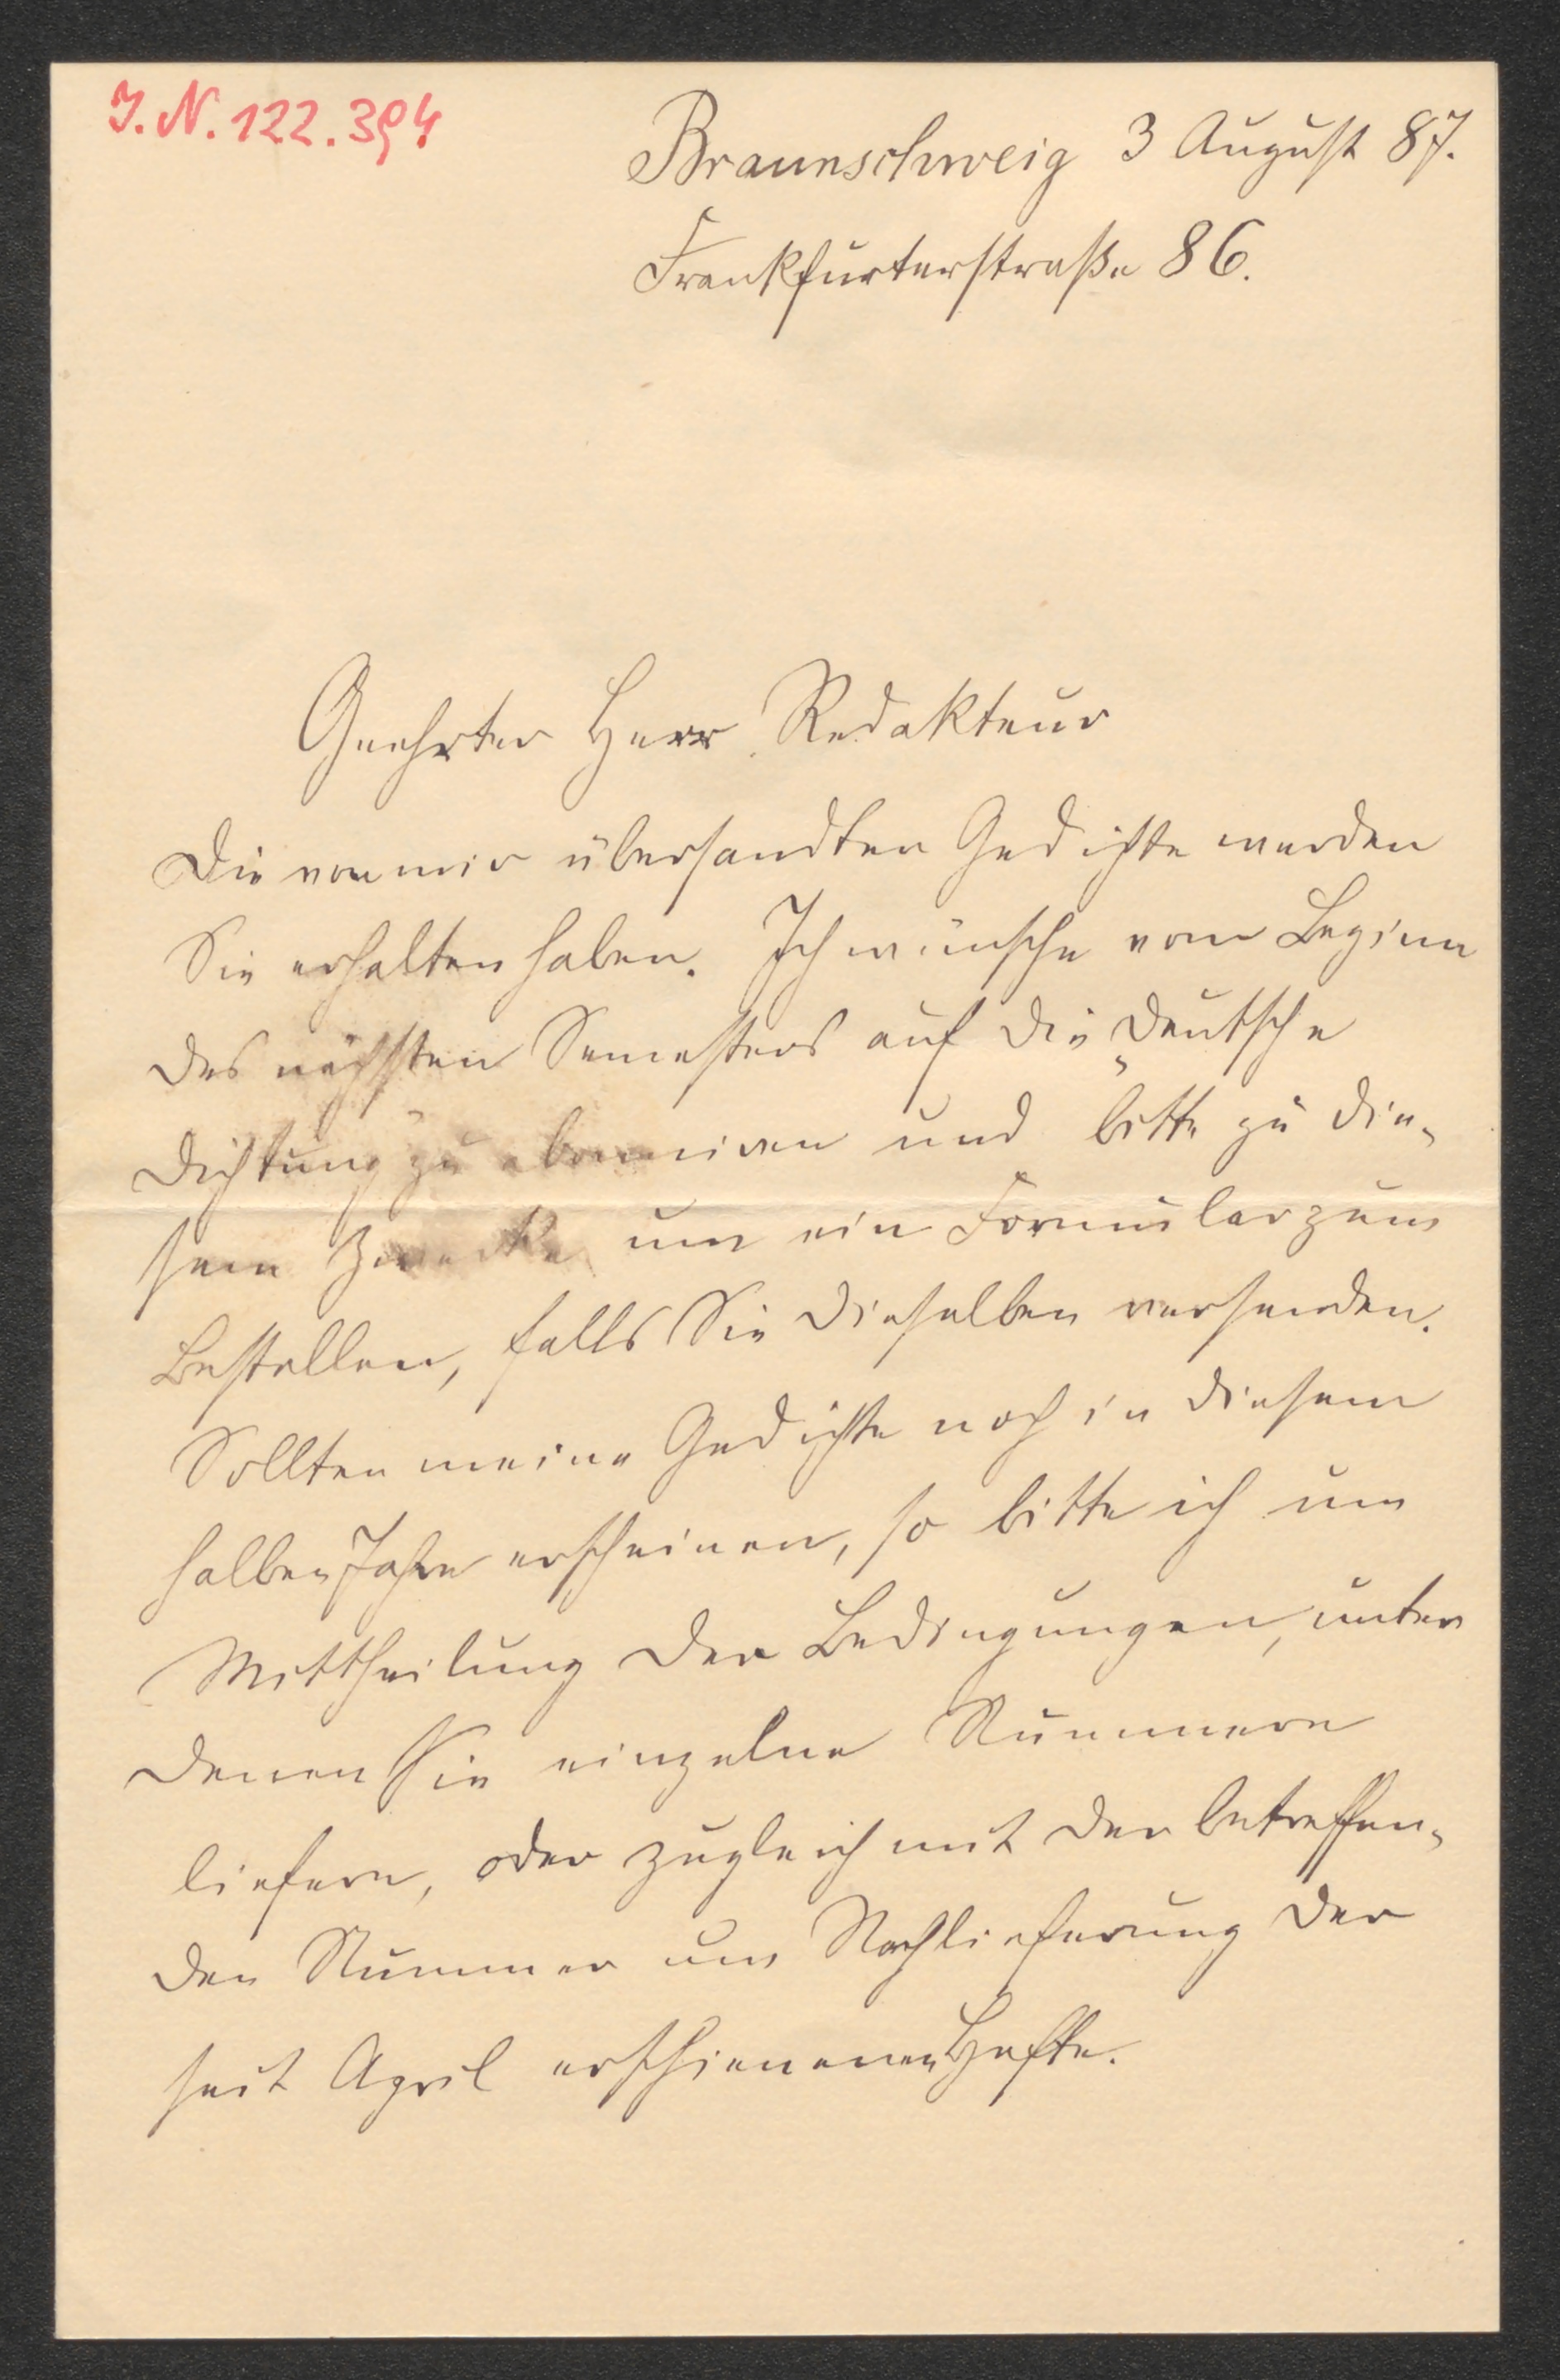 J. N. 122.394
Braunschweig 3 August 87.
Frankfurterstraße 86.
Geehrter Herr Redakteur
Die von mir übersandten Gedichte werden
Sie erhalten haben. Ich wünsche vom Beginn
des nächsten Semesters auf die „Deutsche
Dichtung“ zu abonniren und bitte zu die-
sem Zwecke um ein Formular zum
Bestellen, falls Sie dieselben versenden.
Sollten meine Gedichte noch in diesem
halben Jahre erscheinen, so bitte ich um
Mittheilung der Bedingungen, unter
denen Sie einzelne Nummern
liefern, oder zugleich mit der betreffen-
den Nummer um Nachlieferung der
seit April erschienenen Hefte.